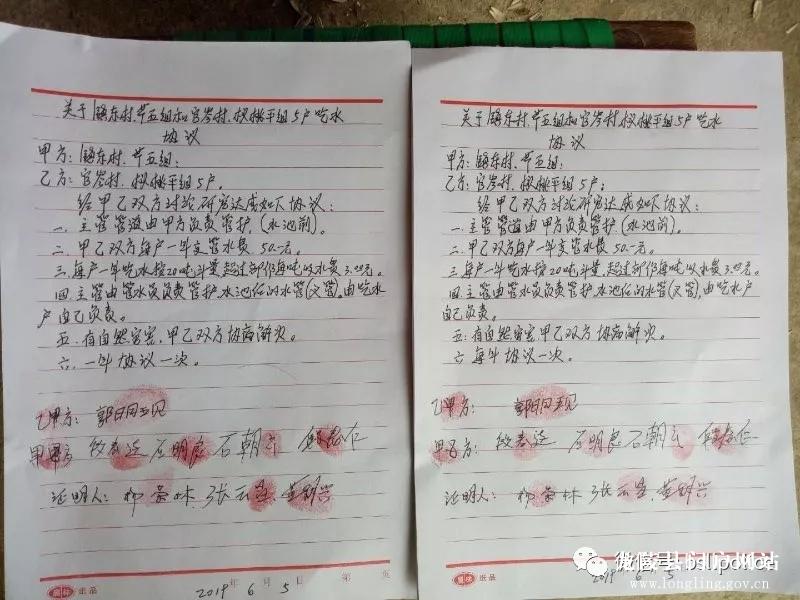 关于 东村、芹五组和官岑村、 桃平组5户吃水
协议
甲方: 东村、芹五组:
乙方:官岑村、 桃平组5户。
经甲乙双方讨论研究达成如下协议:
一、主管管道由甲方负责管护(水池前)。
二、甲乙双方每户一年支管水费50.-元。
三、每户一年吃水按20吨计量,超过部份每吨收水费3.00元。
四、主管由管水员负责管护,水池后的水管(支管),由吃水
户自己负责。
五、有自然灾害,甲乙双方协商解决。
六、一年协议一次。
乙甲方:
甲 方: 石朝
证明人: 张云
2019年6月5日 第 页
纸品
关于 东村、芹五组和官岑村、 桃平组5户吃水
协议
甲方: 东村、芹五组:
乙方:官岑村、 桃平组5户:
经甲乙双方讨论研究达成如下协议:
一、主管管道由甲方负责管护(水池前)。
二、甲乙双方每户一年支管水费50.-元。
三、每户一年吃水按20吨计量,超过部份每吨收水费3.00元。
四、主管由管水员负责管护,水池后的水管(支管),由吃水
户自己负责。
五、有自然灾害,甲乙双方协商解决。
六、每年协议一次。
乙甲方:
甲乙方: 石朝
证明人: 张云
2019 6 5
纸品
www.longling.gov.cn